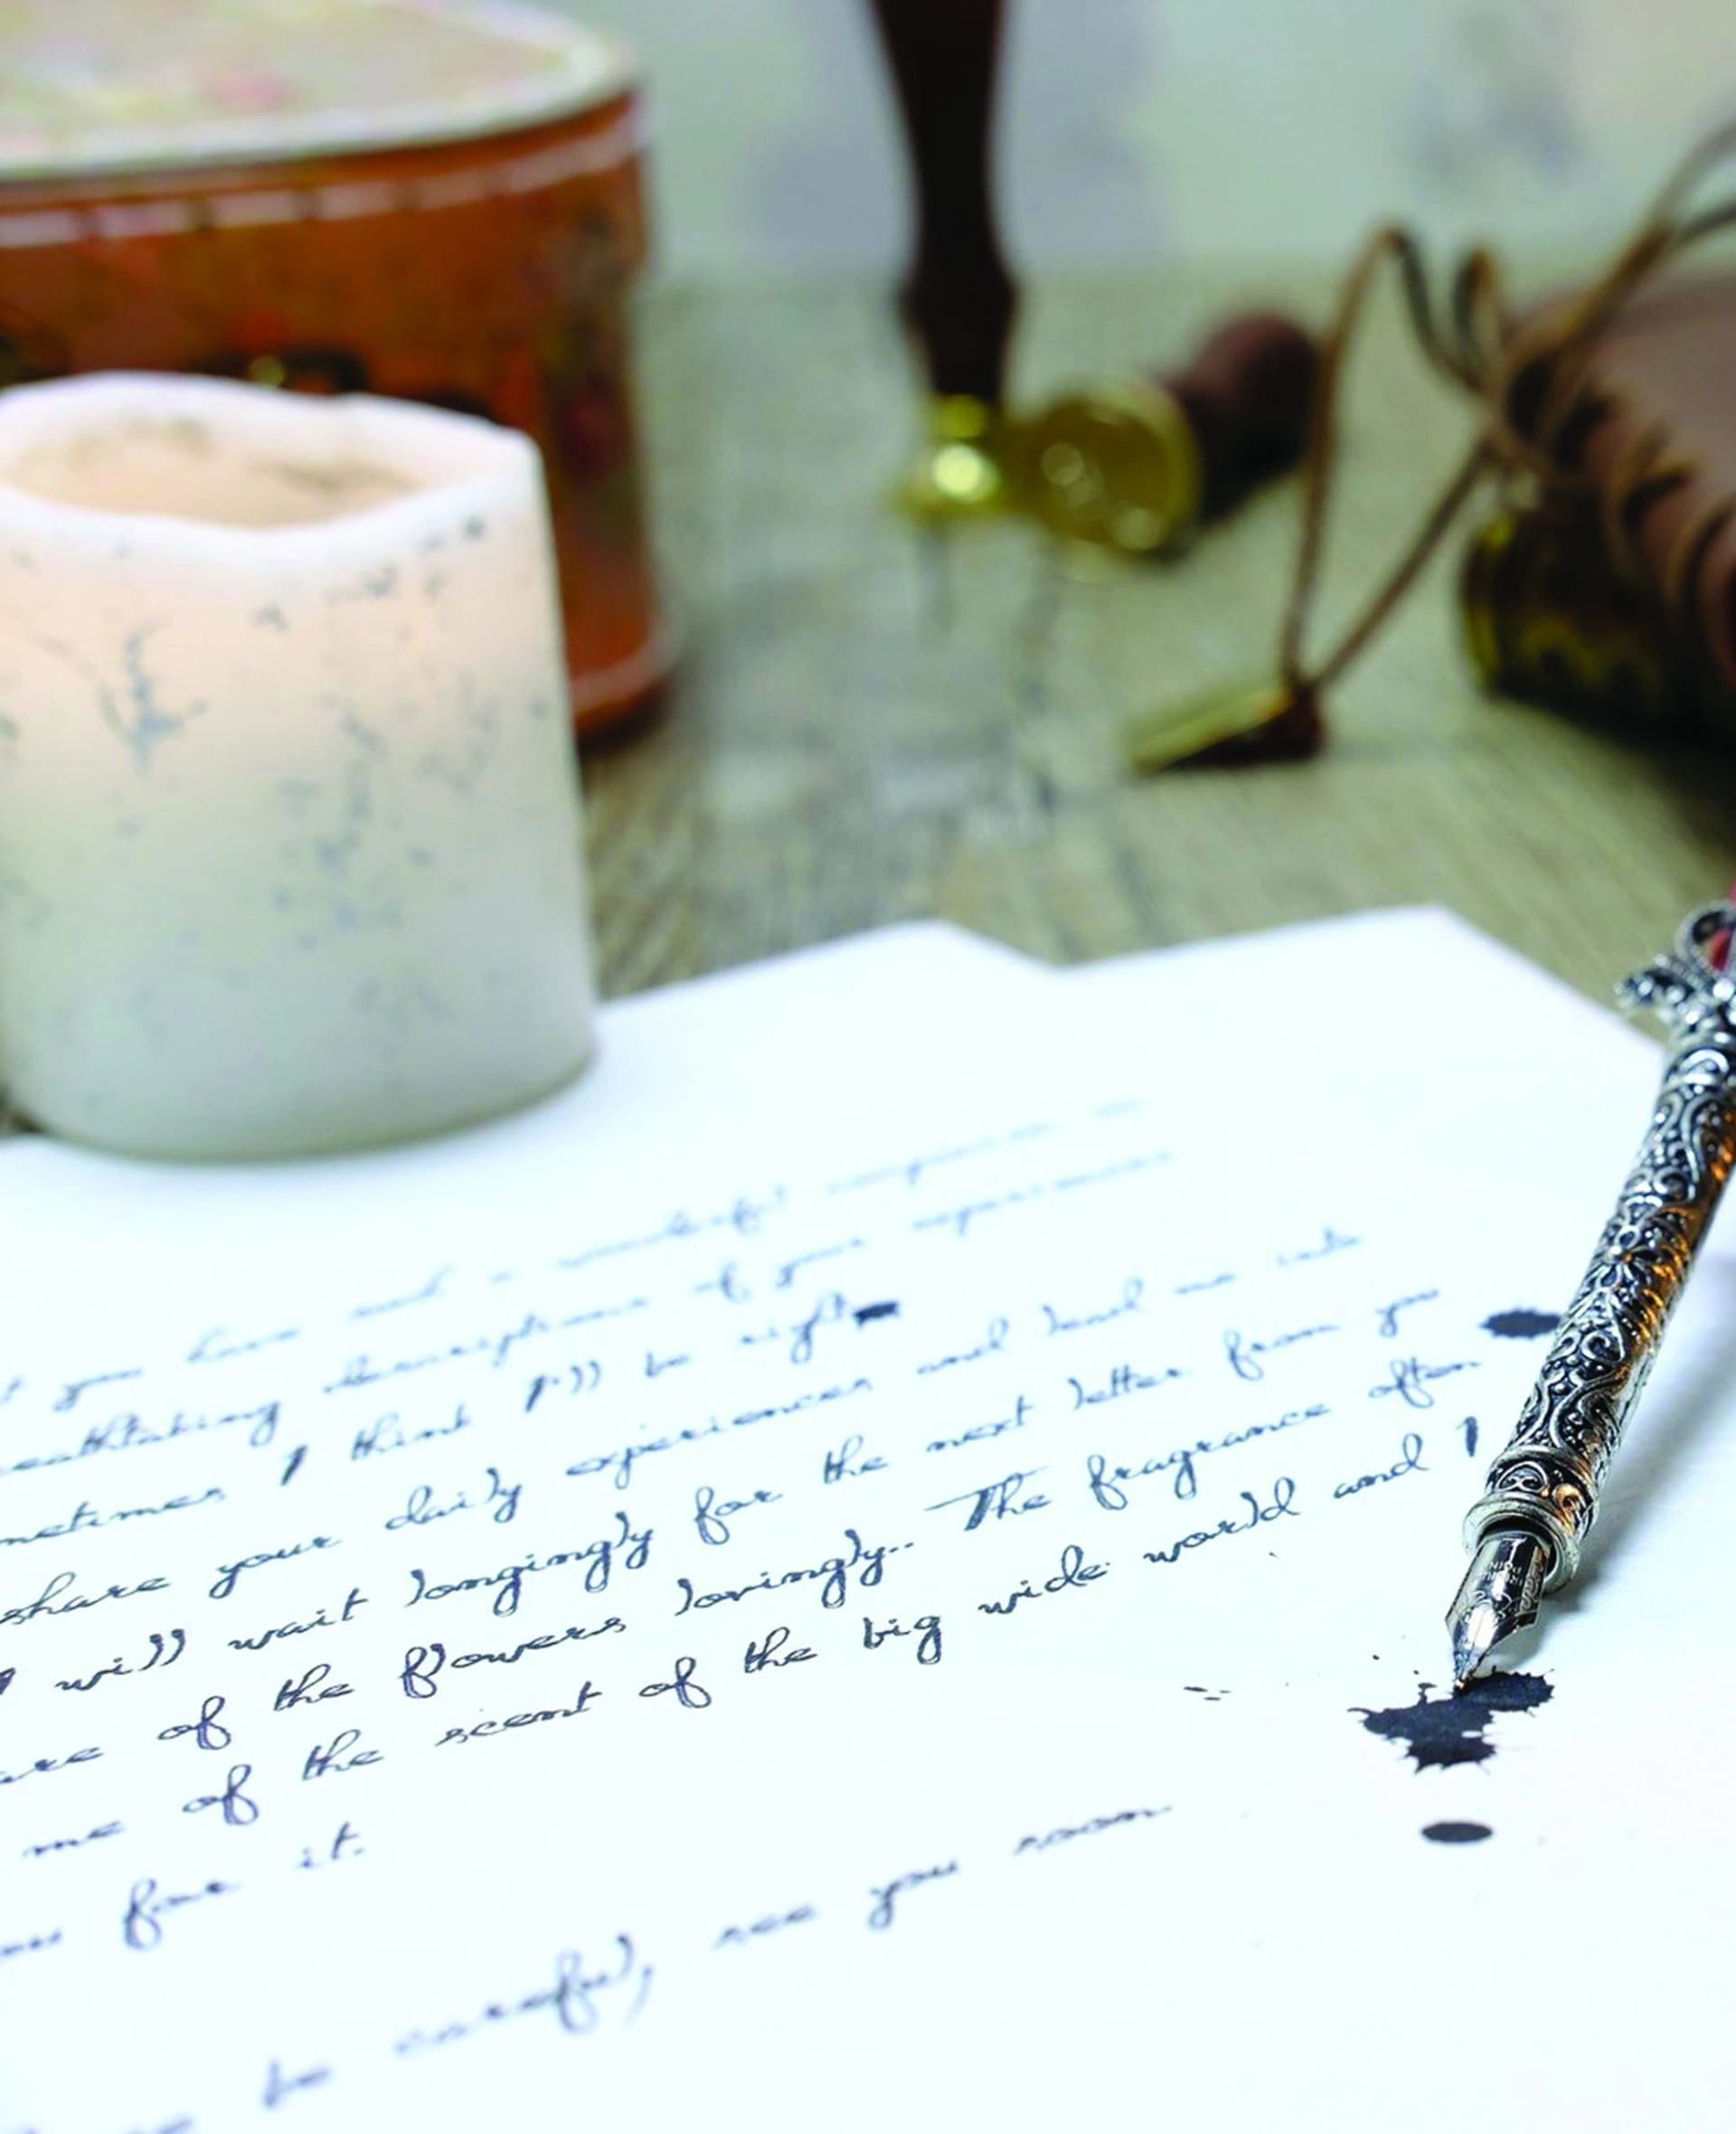 you have such a wonderful
descriptions of your experiences
I think I'll be right
share your daily experiences and lead me into
I will wait longingly for the next letter from you
of the flowers lovingly.. The fragrance often
me of the scent of the big wide world and I
for it.
be careful, see you soon